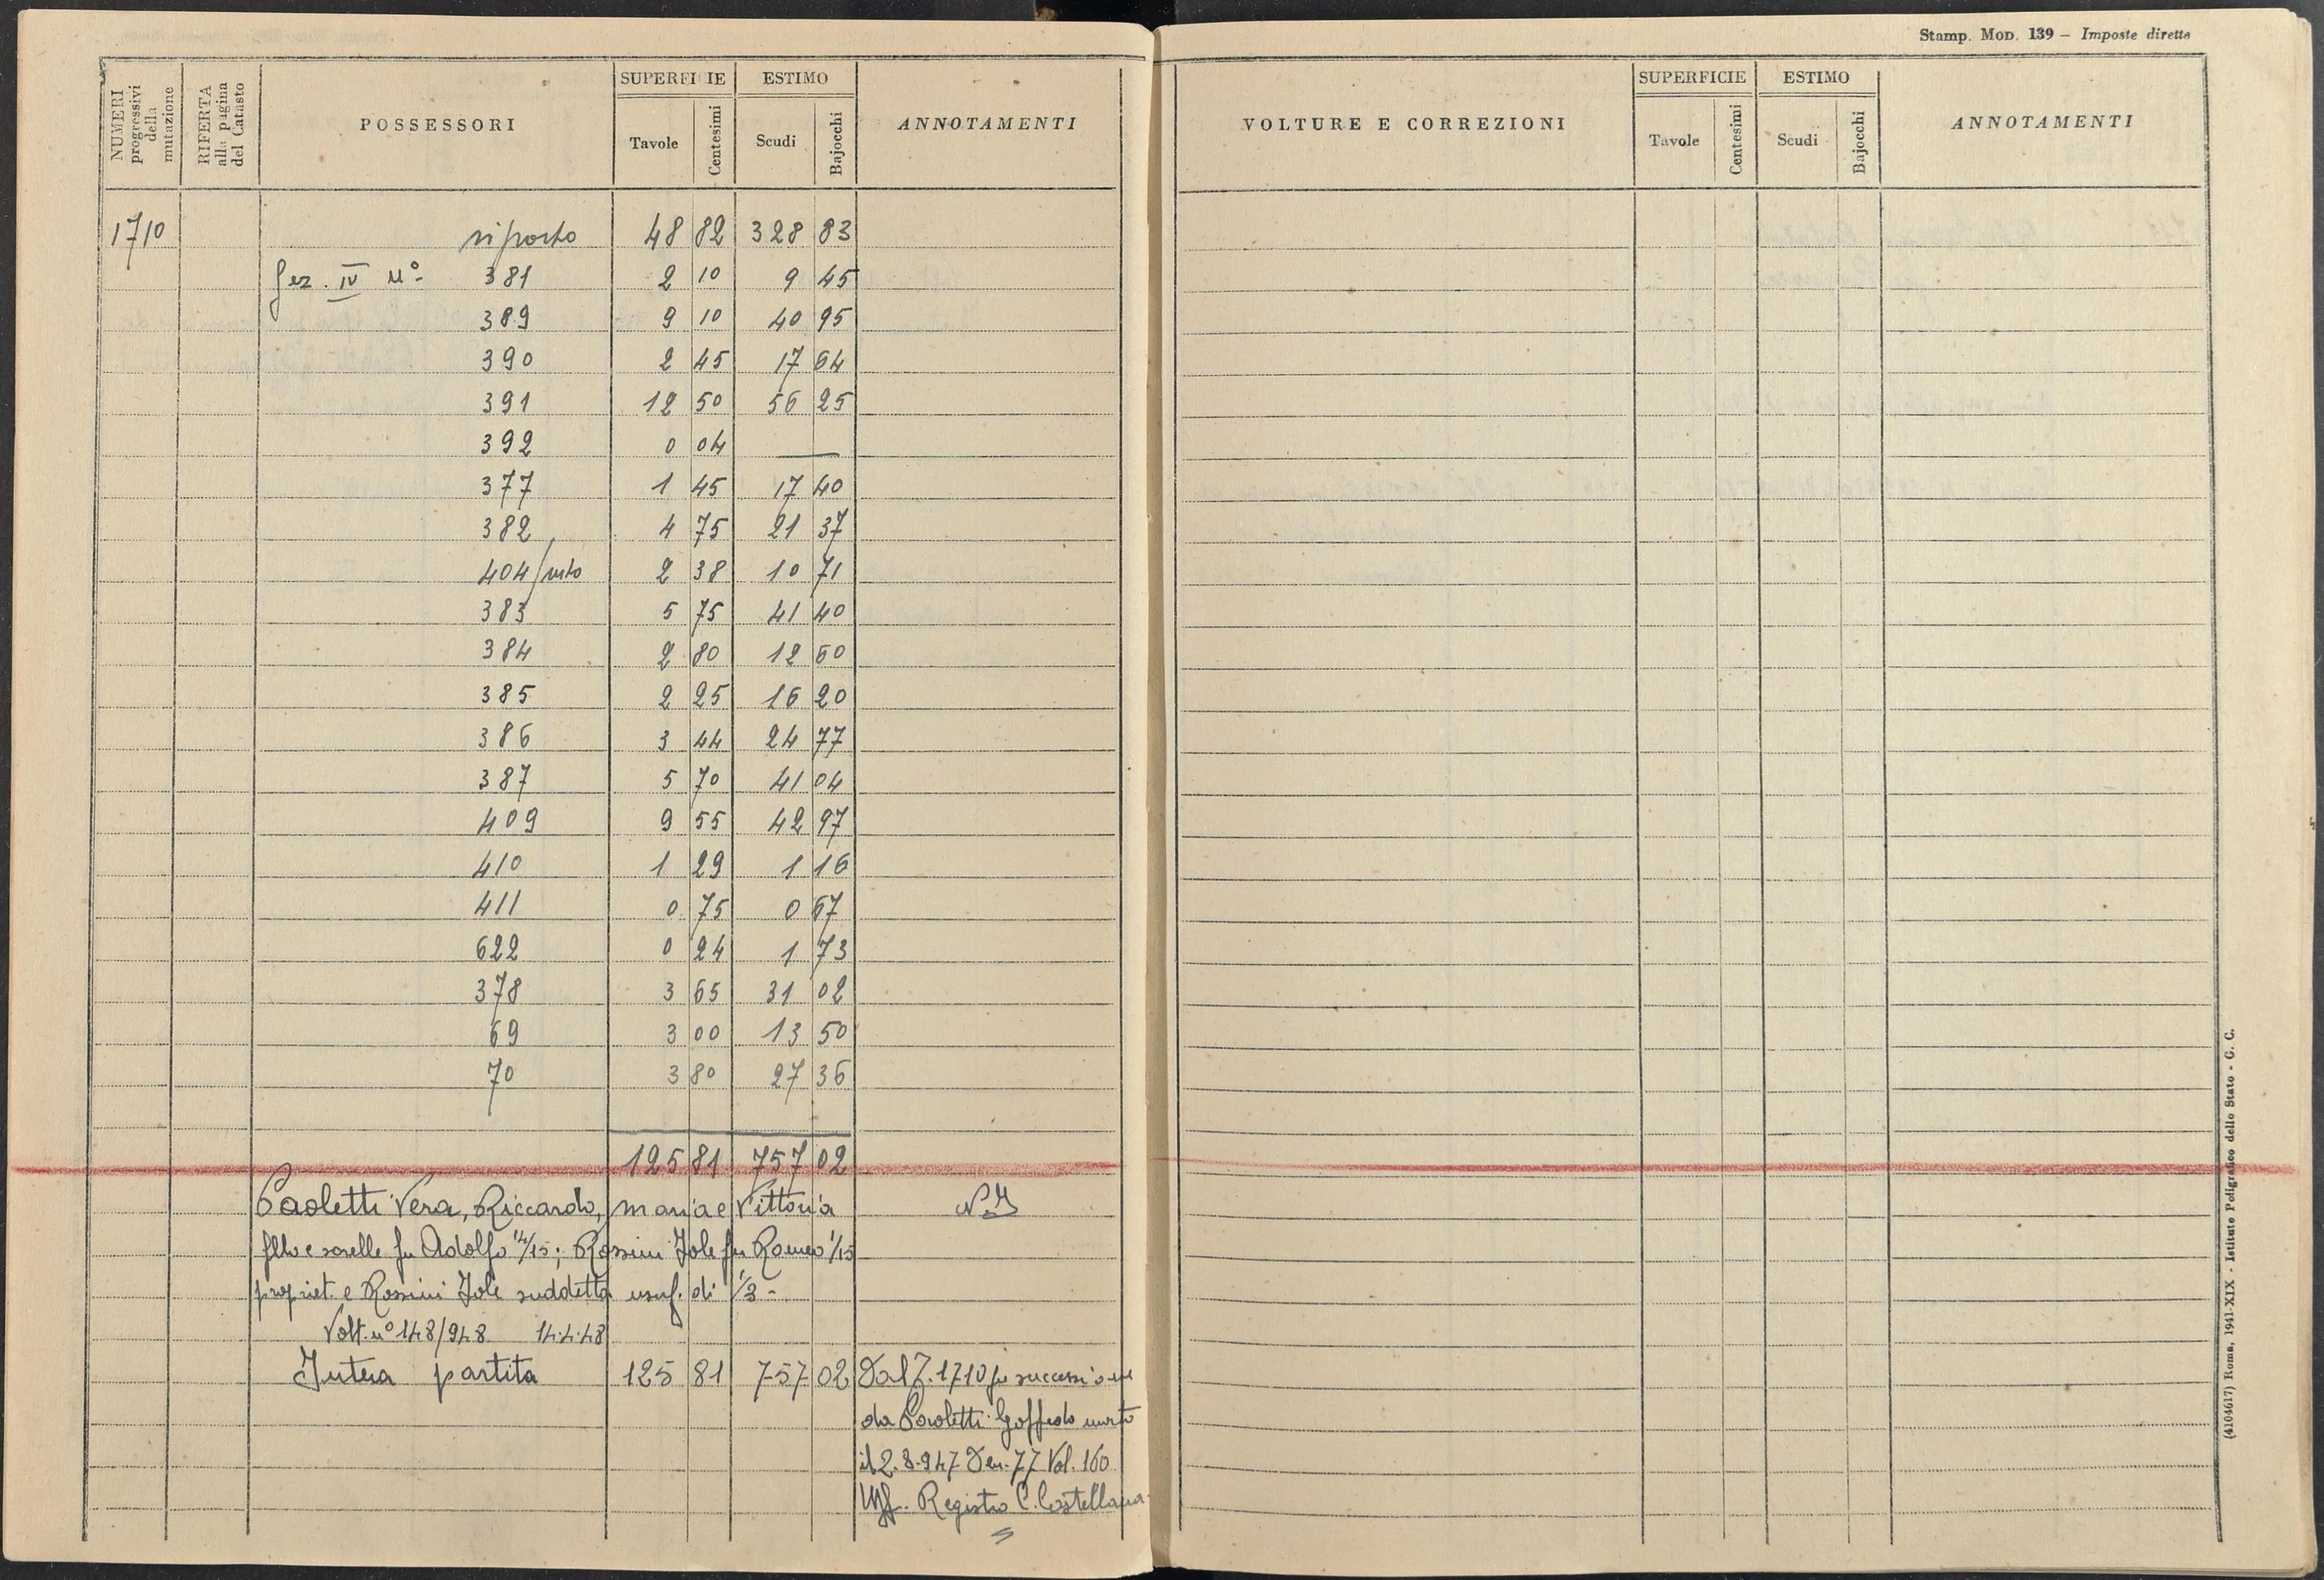 Stamp. Mod. 139 – Imposte dirette
NUMERI progressivi della mutazione
RIFERTA alla pagina del Catasto
POSSESSORI
SUPERFICIE
Tavole
Centesimi
ESTIMO
Scudi
Bajocchi
ANNOTAMENTI
VOLTURE E CORREZIONI
SUPERFICIE
Tavole
Centesimi
ESTIMO
Scudi
Bajocchi
ANNOTAMENTI
1710 riporto 48 82 328 83
Sez. IV N° 381 2 10 9 45
389 9 10 40 95
390 2 45 17 64
391 12 50 56 25
392 0 04 —
377 1 45 17 40
382 4 75 21 37
404 2 38 10 71
383 5 75 41 40
384 2 80 12 60
385 2 25 16 20
386 3 44 24 77
387 5 70 41 04
409 9 55 42 97
410 1 29 1 16
411 0 75 0 67
622 0 24 1 73
378 3 65 31 02
69 3 00 13 50
70 3 80 27 36
125 81 757 02
Paoletti Vera, Riccardo, Maria e Vittoria
fllo e sorelle fu Adolfo 14/15; Rossini Jole fu Romeo 1/15
propriet. e Rossini Jole suddetta usuf. di 1/3 -
Volt. n° 148/948 14.4.48
Intera partita 125 81 757 02 Dal 7. 1710 per successione
da Paoletti Goffredo morto
il 2.8.947 Den. 77 Vol. 160
Uff. Registro C. Castellana
(4104617) Roma, 1941-XIX - Istituto Poligrafico dello Stato - G. C.